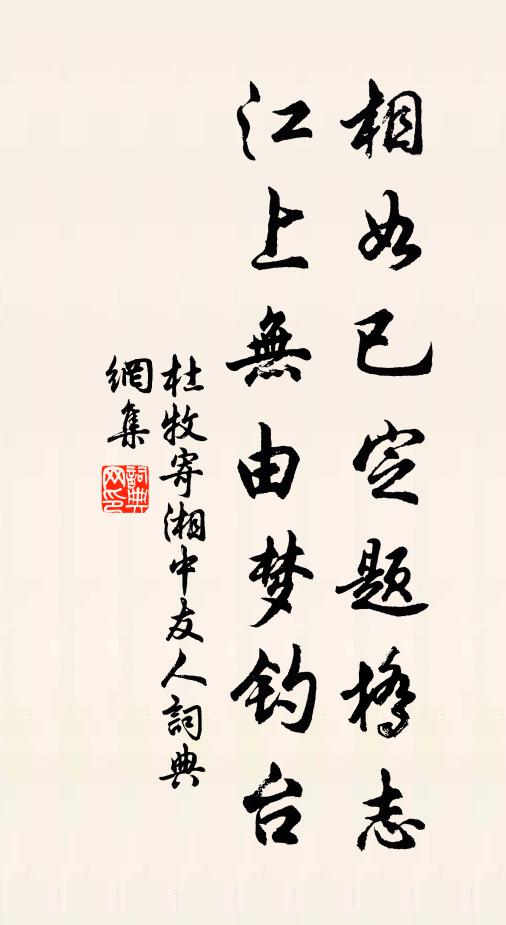 相如已定题橋志
江上無由梦钓台
杜牧寄湘中友人詞典
網集
詞典
网印